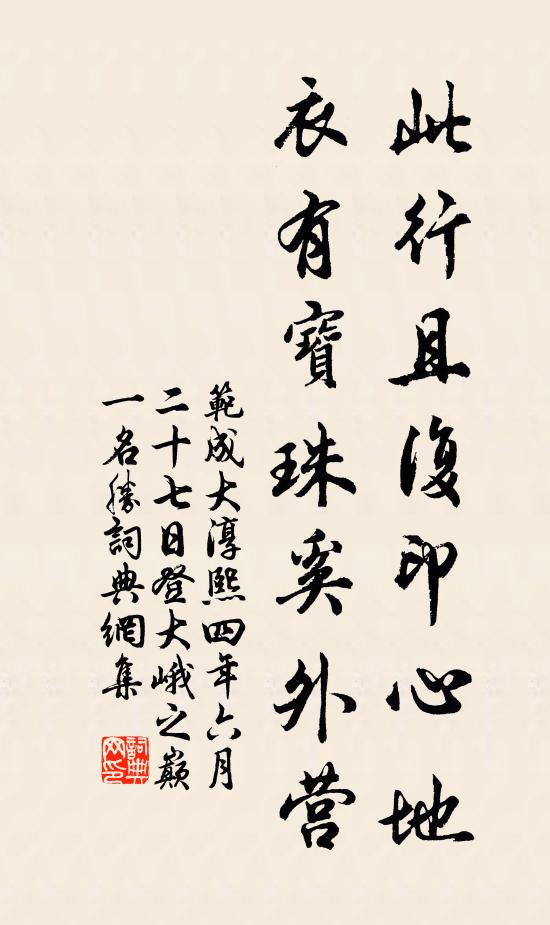 此行且復印心地
衣有寶珠奚外營
範成大淳熙四年六月
二十七日登大峨之巔
一名勝詞典網集
詞典
网印